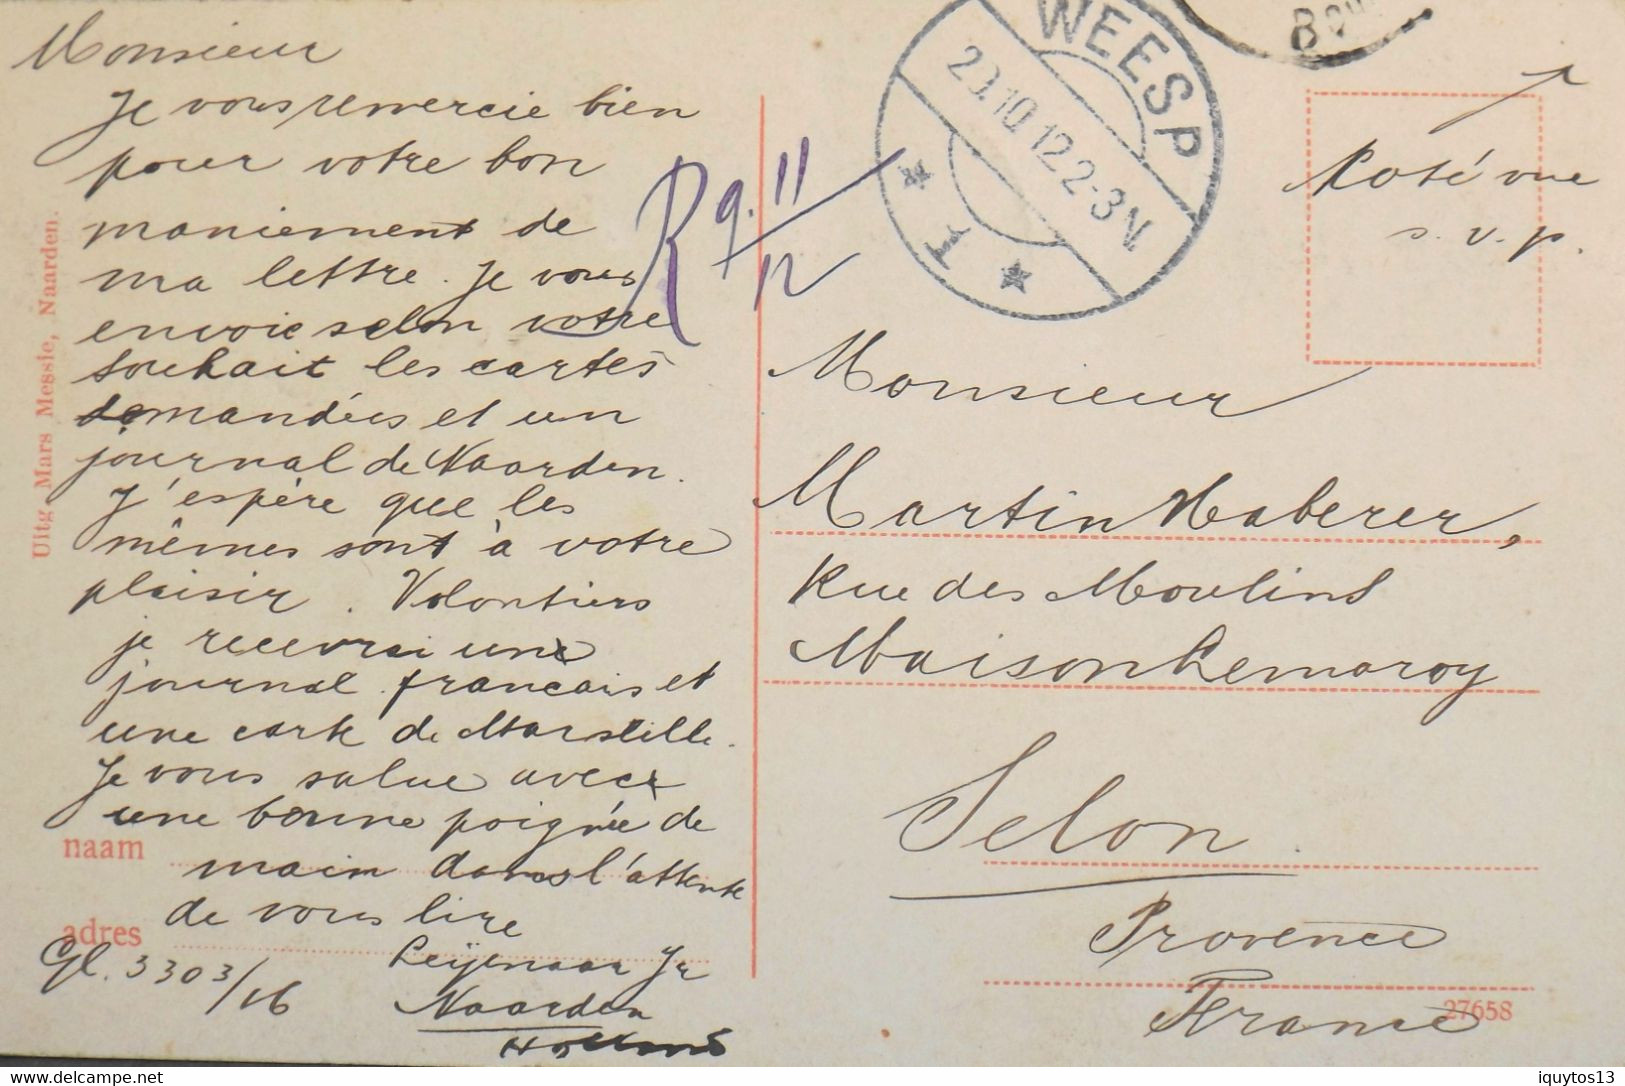 Monsieur
Je vous remercie bien
pour votre bon
maniement de
ma lettre. Je vous
envoie selon votre
souhait les cartes
demandées et un
journal de Naarden.
J'espère que les
mêmes sont à votre
plaisir. Volontiers
je recevrai une
journal francais et
une carte de Marseille.
Je vous salue avec
une bonne poignée de
main dans l'attente
de vous lire
Leijenaar Jr
Naarden
Holland
Gl. 3303/16
naam
adres
Uitg Mars Messie, Naarden.
R 9.11/12
WEESP
10.12 2-3N
T
Coté vue
s.v.p.
Monsieur
Martin Haberer,
Rue des Moulins
Maison Lemaroy
Selon.
Provence
France
27658
iquytos13